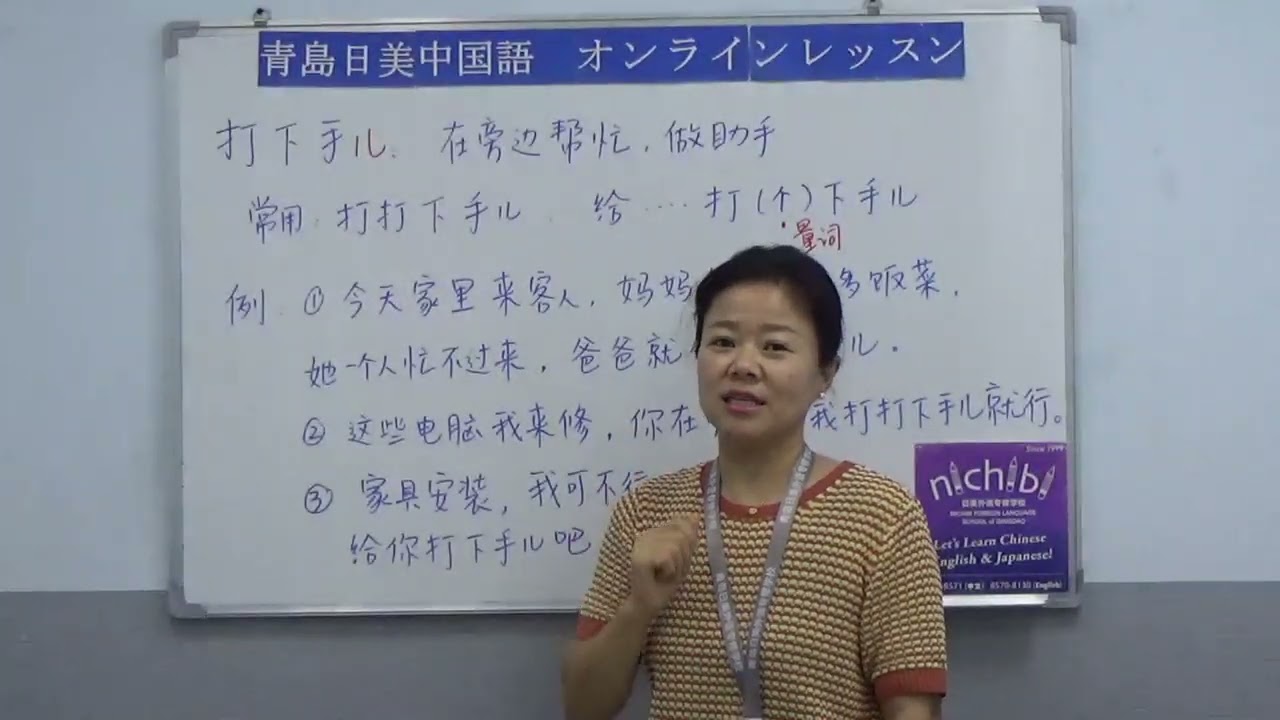 青島日美中国語 オンラインレッスン
打下手儿. 在旁边帮忙，做助手
常用: 打打下手儿. 给....打(个)下手儿
量词
例: ① 今天家里来客人，妈妈 多饭菜，
她一个人忙不过来，爸爸就 儿.
② 这些电脑我来修，你在 我打打下手儿就行。
③ 家具安装，我可不行
给你打下手儿吧
Since 1999
nichibi
日美外语专修学校
NICHIBI FOREIGN LANGUAGE
SCHOOL of QINGDAO
Let's Learn Chinese
English & Japanese!
8571 (中文) 8570-8130 (English)